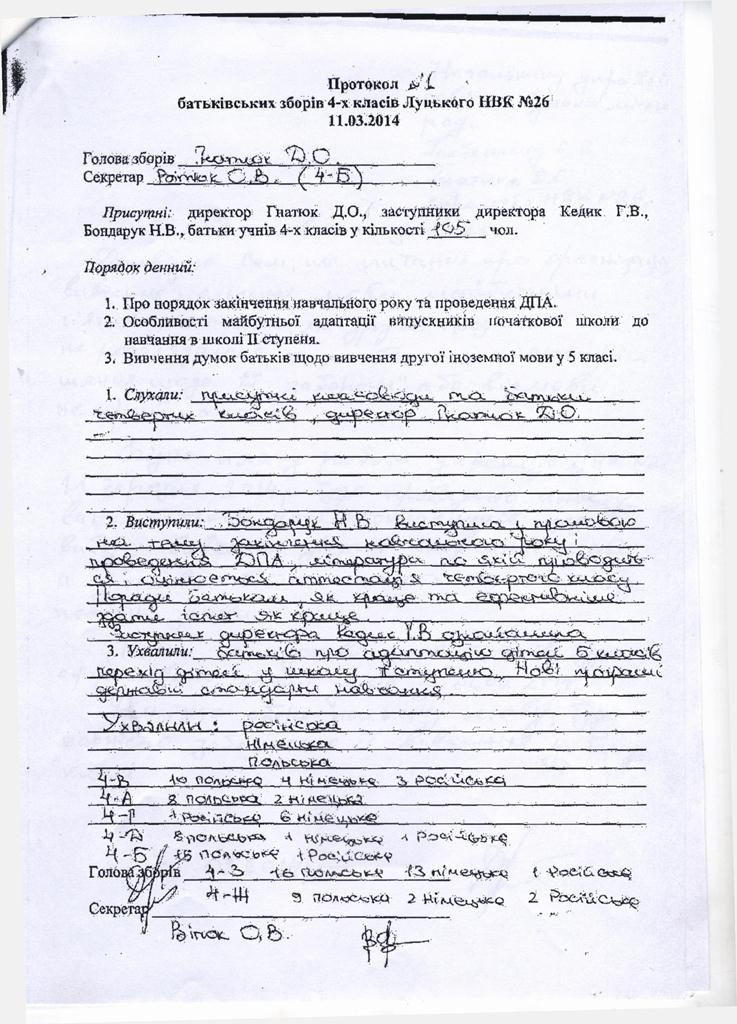 Протокол №1
батьківських зборів 4-х класів Луцького НВК №26
11.03.2014
Голова зборів Гнатюк Д.О.
Секретар Ройюк О.В. (4-Б)
Присутні: директор Гнатюк Д.О., заступники директора Кедик Г.В.,
Бондарук Н.В., батьки учнів 4-х класів у кількості 105 чол.
Порядок денний:
1. Про порядок закінчення навчального року та проведення ДПА.
2. Особливості майбутньої адаптації випускників початкової школи до
навчання в школі ІІ ступеня.
3. Вивчення думок батьків щодо вивчення другої іноземної мови у 5 класі.
1. Слухали: присутні класоводи та батьки
четвертих класів, директор Гнатюк Д.О.
2. Виступили: Бондарук Н.В. виступила з промовою
на тему закінчення навчального року і
проведення ДПА, література по якій проводить
ся і оцінюється аттостація четвертого класу
Поради батькам, як краще та ефективніше
здати іспит як краще
Заступник директора Кедик Г.В ознайомила
3. Ухвалили: батьків про адаптацію дітей 5 класів
перехід дітей у школу ІІ ступеню. Нові програмі
державні стандарти навчання.
Ухвалили: російська
німецька
польська
4-В 10 польська 4 німецька 3 російська
4-А 8 польська 2 німецька
4-Г 1 російська 6 німецька
4-Д 8 польська 1 німецька 1 російська
4-Б 15 польська 1 російська
Голова зборів 4-З 16 польська 13 німецька 1 російська
4-Ж 9 польська 2 німецька 2 російська
Секретар
О.В.